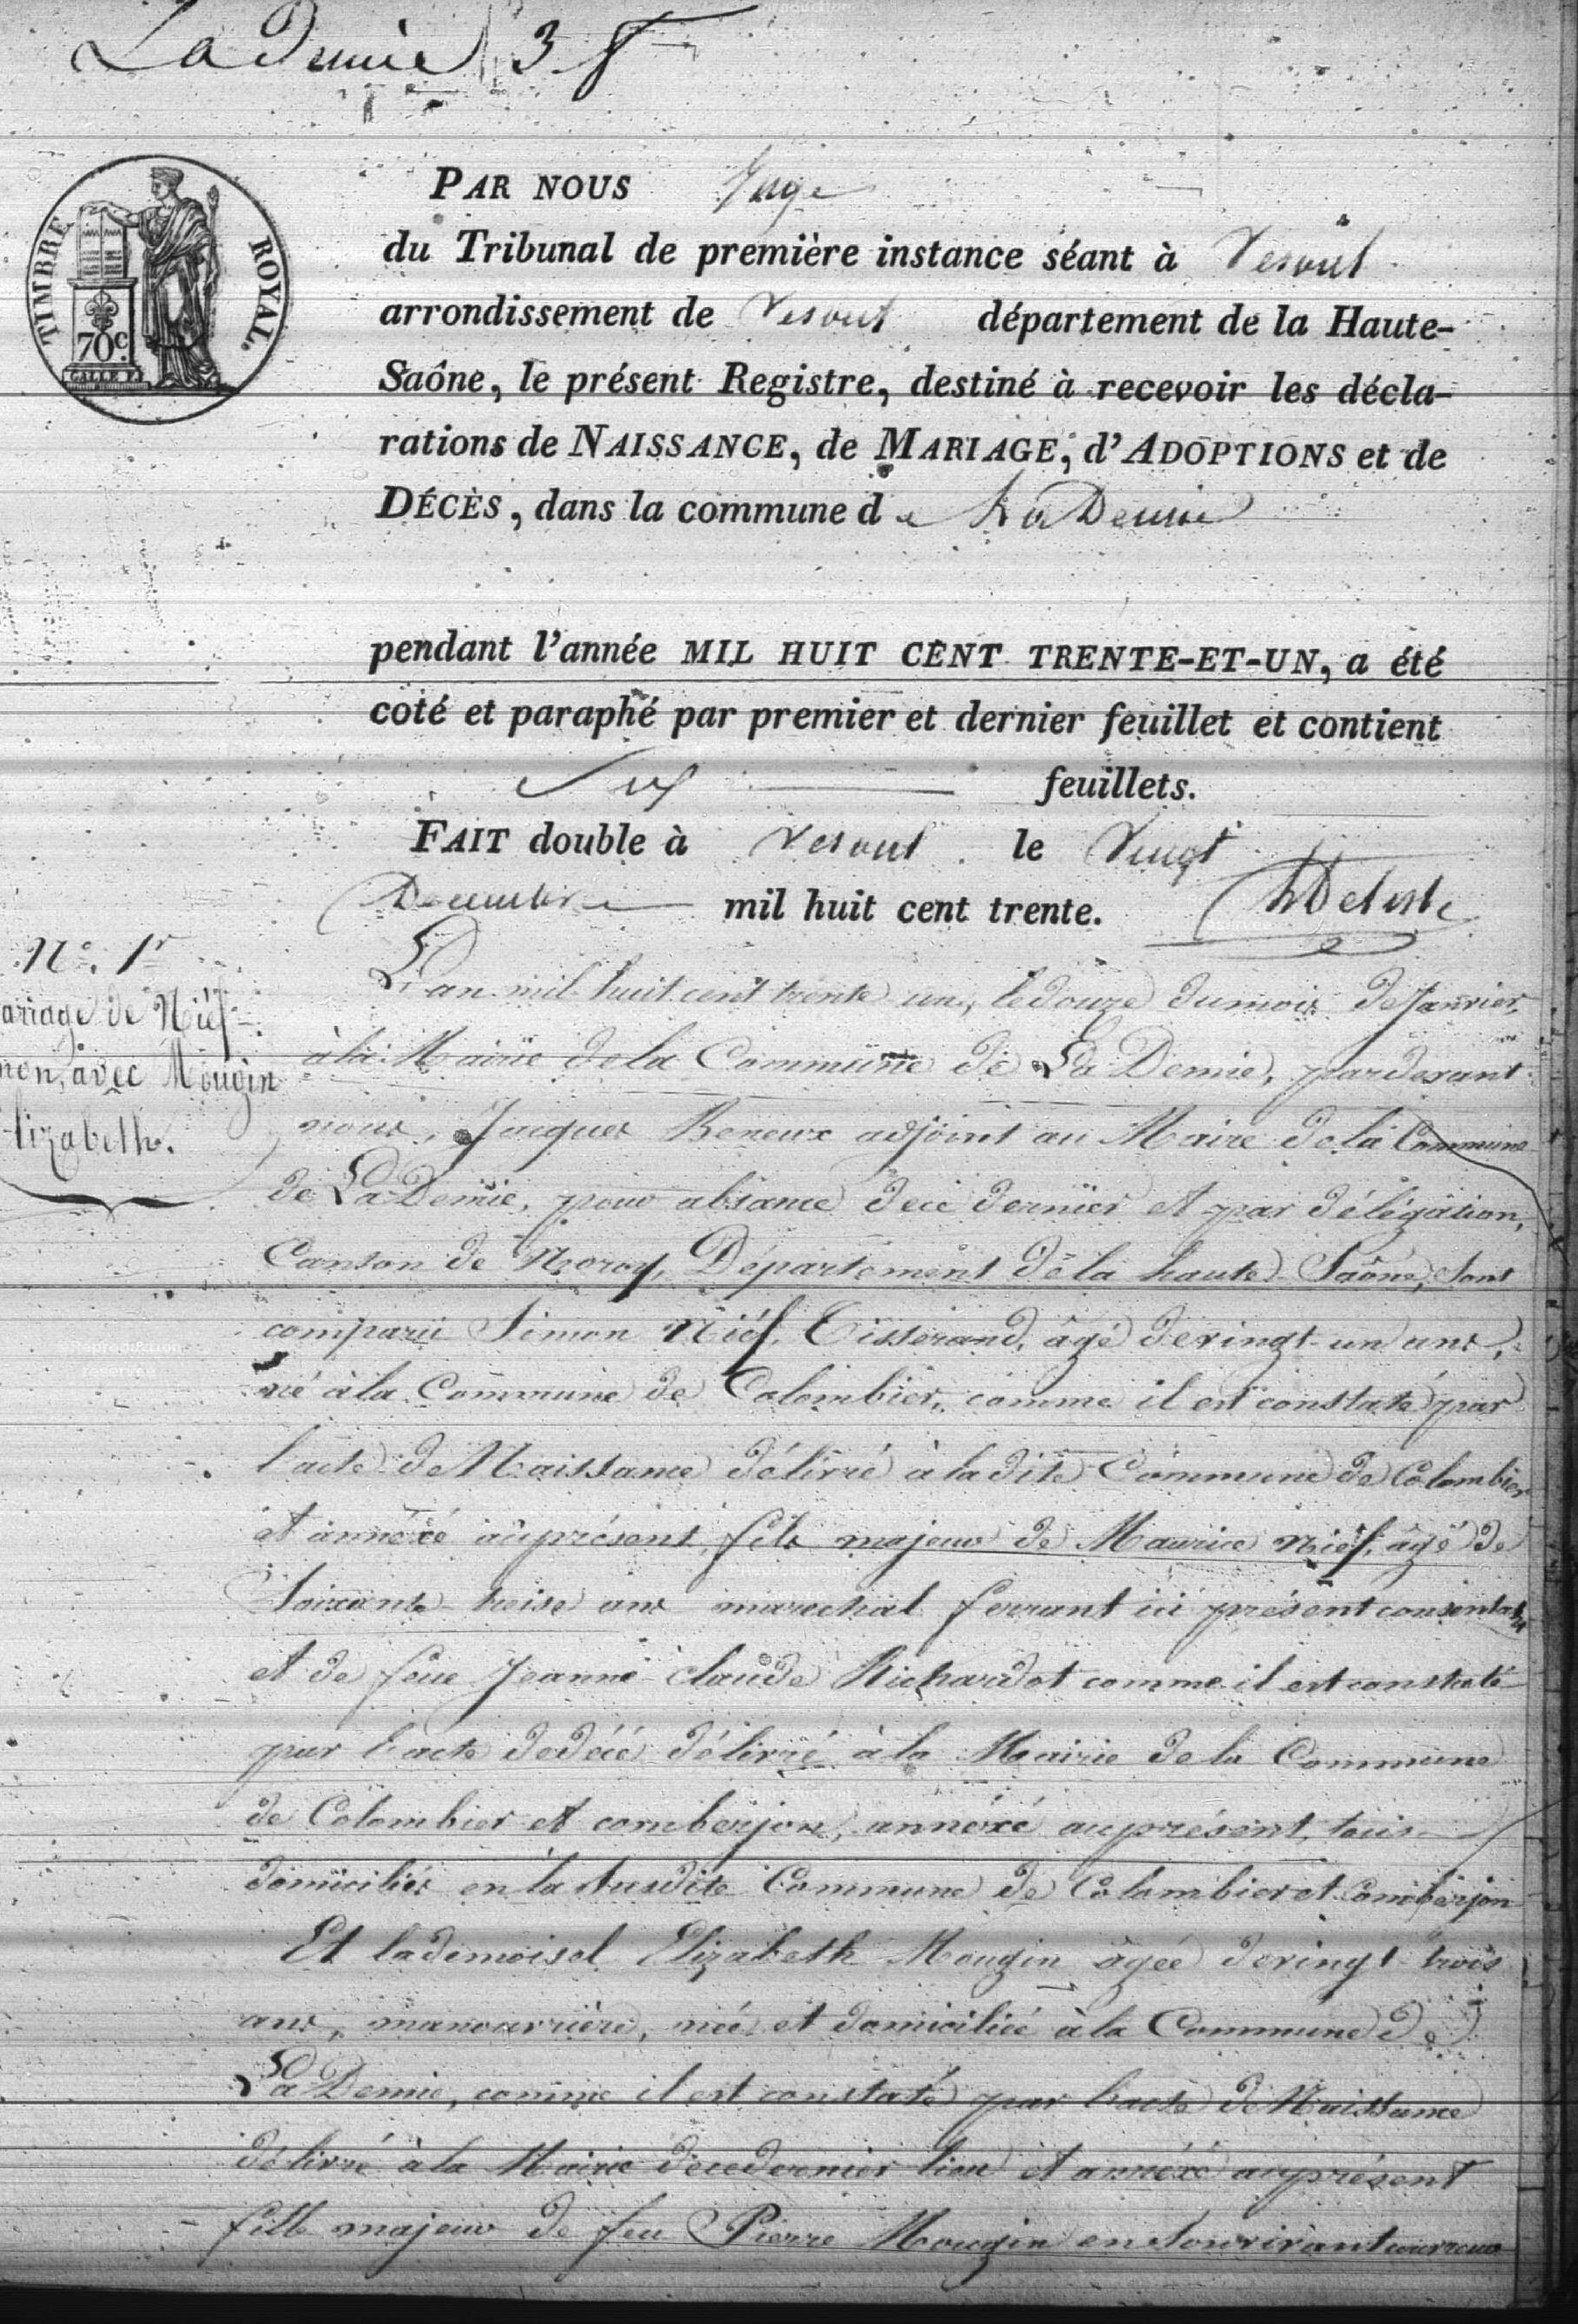 La Demie 3 f
TIMBRE ROYAL.
70c.
PAR NOUS Juge
du Tribunal de première instance séant à Vesoul
arrondissement de Vesoul département de la Haute-
Saône, le présent Registre, destiné à recevoir les décla-
rations de NAISSANCE, de MARIAGE, d'ADOPTIONS et de
DÉCÈS, dans la commune de La Demie
pendant l'année MIL HUIT CENT TRENTE-ET-UN, a été
coté et paraphé par premier et dernier feuillet et contient
Six feuillets.
FAIT double à Vesoul le Vingt
Decembre mil huit cent trente.
N°. 1r
ariage de Nief
mon, avec Mougin
lizabeth.
L'an mil huit cent trente un, le douze du mois de Janvier,
à la Mairie de la Commune de La Demie, pardevant
nous, Jacques Reneux adjoint au Maire de la Commune
de La Demie, pour absance de ce dernier et par délégation,
Canton de Noroy, Département de la haute Saône, sont
comparu Simon Nief, Tisserand, âgé de vingt-un ans,
né à la Commune de Colombier, comme il est constaté par
l'acte de Naissance délivré à la dite Commune de Colombier
et annéxé au présent, fils majeur de Maurice Nief, âgé de
Soixante-treise ans marechal ferrant ici présent consentant
et de feue Jeanne claude Richardot comme il est constaté
par l'acte de décé délivré à la Mairie de la Commune
de Colombier et comberjon, annéxé au présent, tous
domiciliés en la susdite Commune de Colombier et Comberjon
Et lademoisel Elizabeth Mougin âgée de vingt trois
ans, manouvrière, née et domiciliée à la Commune de
La Demie, comme il est constaté par l'acte de Naissance
délivré à la Mairie de ce dernier lieu et annéxé au présent
fille majeur de feu Pierre Mougin en son vivant